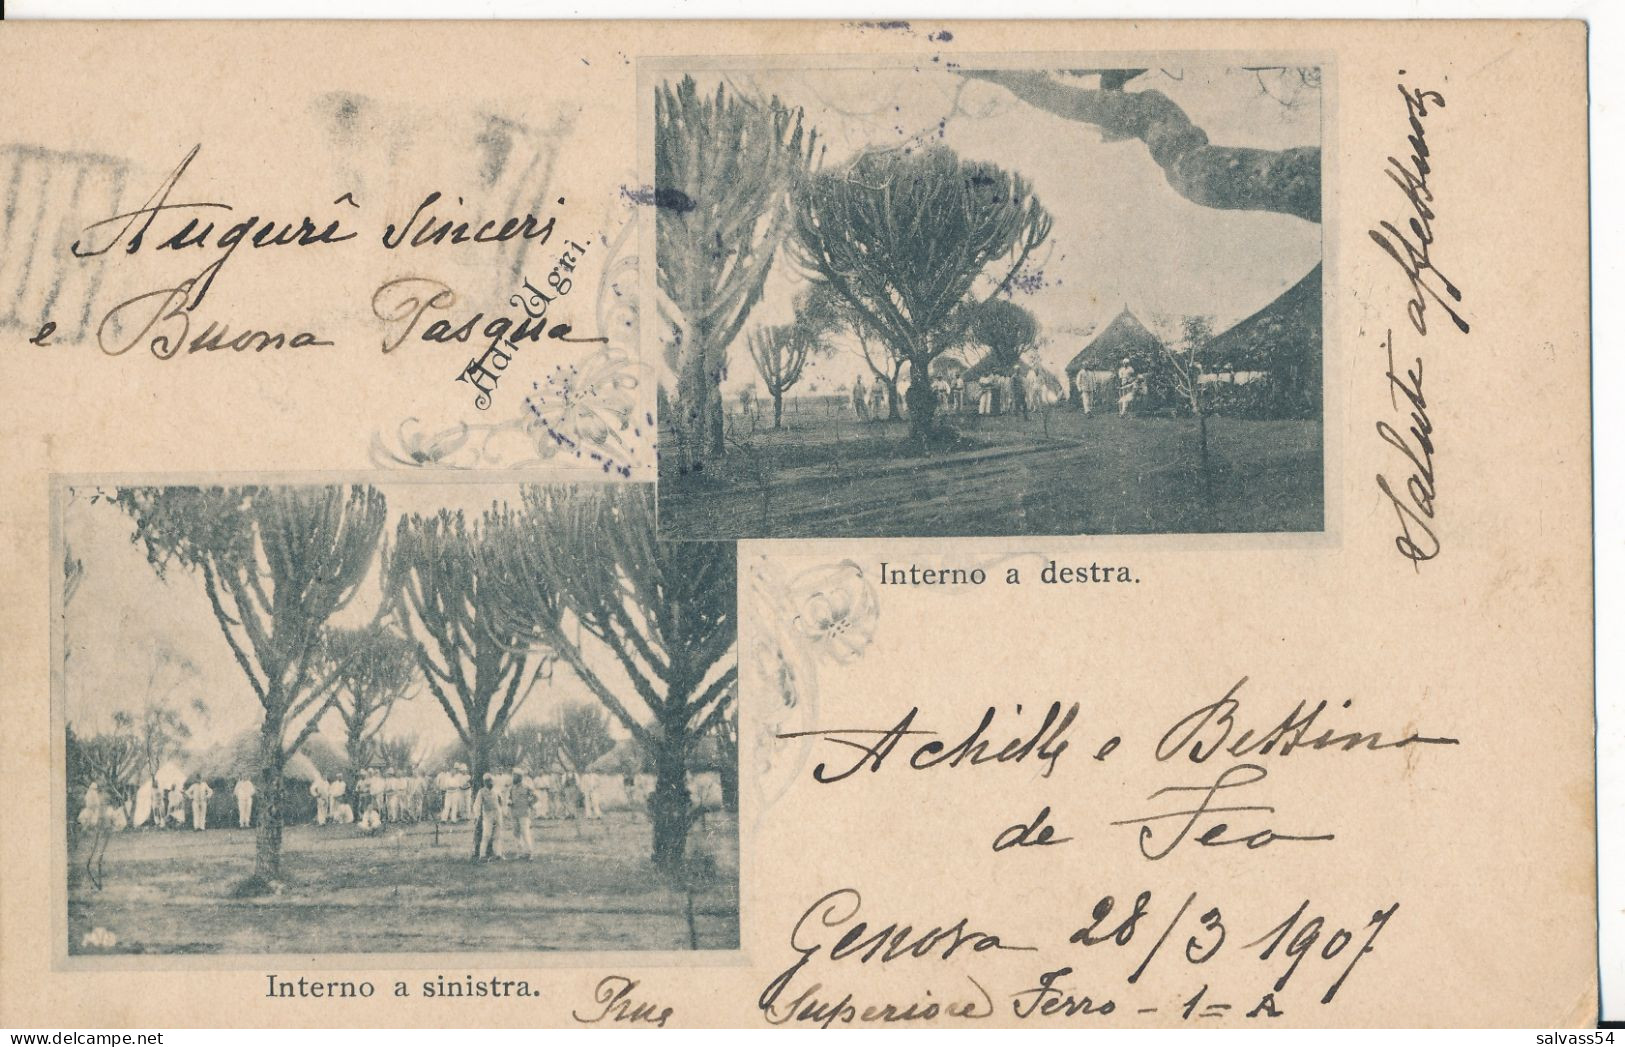 Augurî sinceri
e Buona Pasqua
Adi Ugri.
Interno a destra.
Interno a sinistra.
Achille e Bettina
de Feo
Genova 28/3 1907
Superiore Ferro - 1= A
Salute
delcampe.net
salvass54